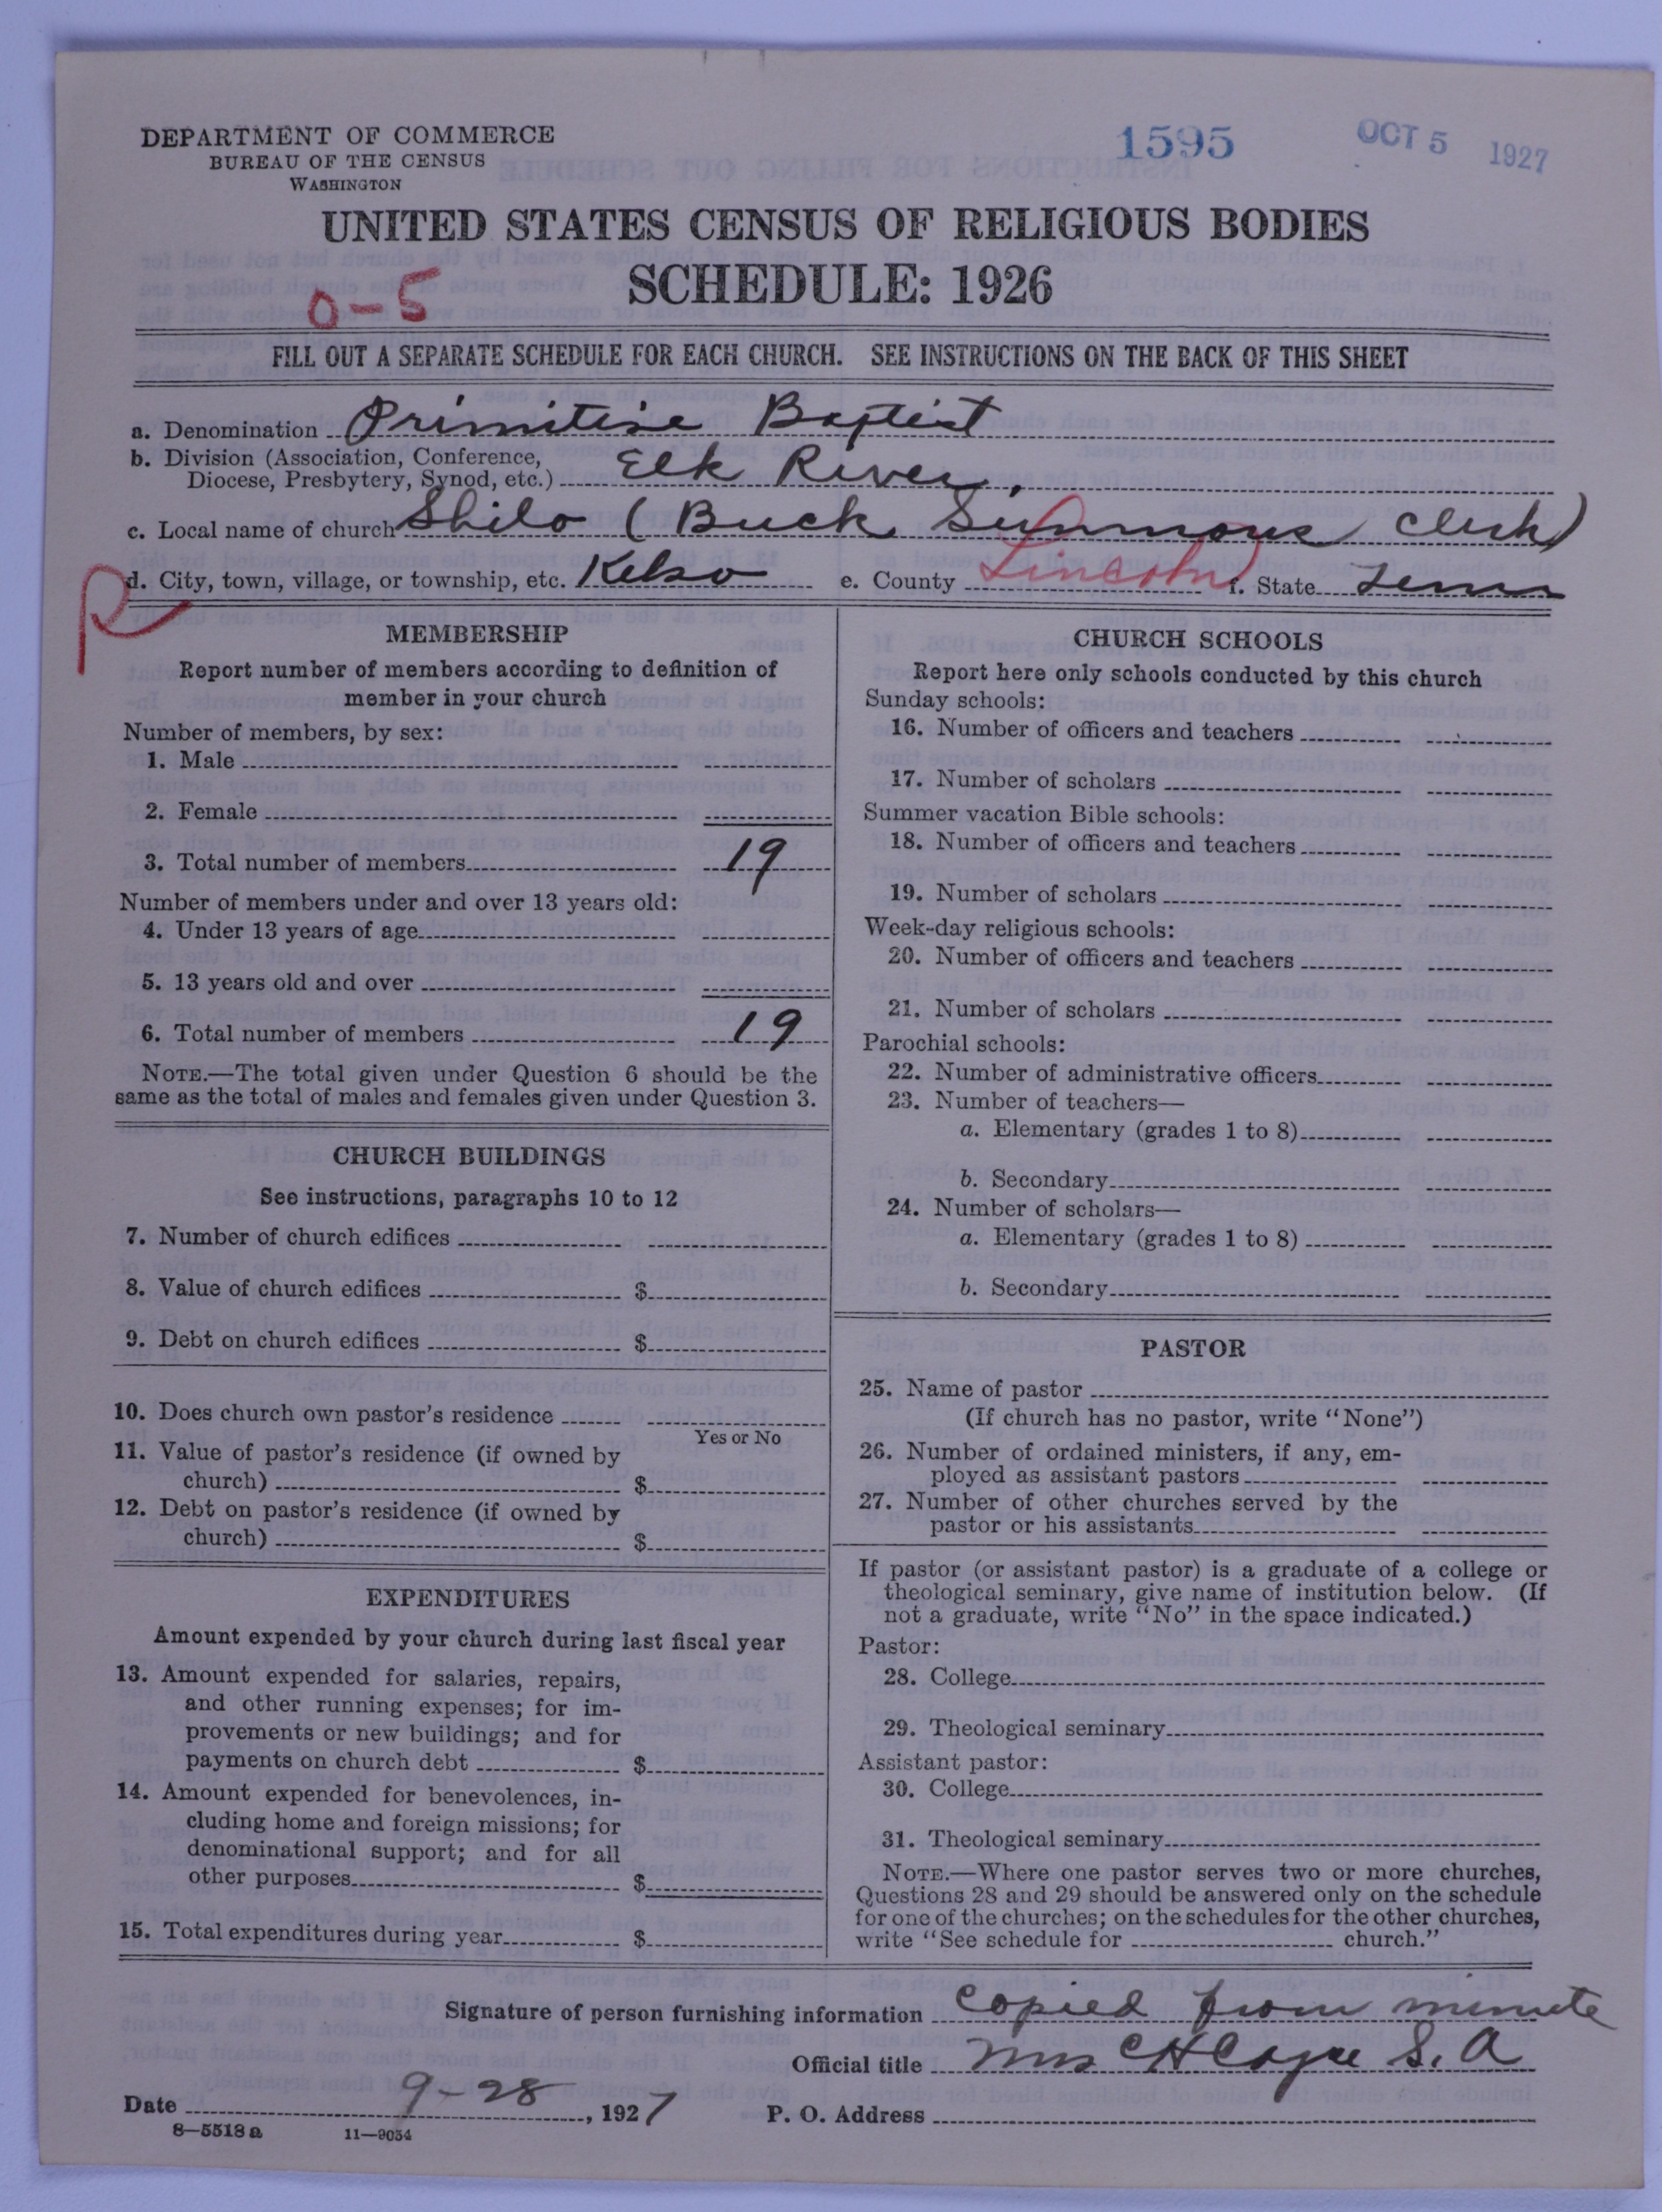 DEPARTMENT OF COMMERCE
BUREAU OF THE CENSUS
WASHINGTON
1595
OCT 5 1927
UNITED STATES CENSUS OF RELIGIOUS BODIES
SCHEDULE: 1926
0-5
FILL OUT A SEPARATE SCHEDULE FOR EACH CHURCH. SEE INSTRUCTIONS ON THE BACK OF THIS SHEET
a. Denomination Primitive Baptist
b. Division (Association, Conference,
Diocese, Presbytery, Synod, etc.) Elk River
c. Local name of church Shilo (Buck Summons clerk)
d. City, town, village, or township, etc. Kelso e. County Lincoln f. State Tenn
R
MEMBERSHIP
Report number of members according to definition of
member in your church
Number of members, by sex:
1. Male
2. Female
3. Total number of members 19
Number of members under and over 13 years old:
4. Under 13 years of age
5. 13 years old and over
6. Total number of members 19
NOTE.—The total given under Question 6 should be the
same as the total of males and females given under Question 3.
CHURCH BUILDINGS
See instructions, paragraphs 10 to 12
7. Number of church edifices
8. Value of church edifices $
9. Debt on church edifices $
10. Does church own pastor's residence
Yes or No
11. Value of pastor's residence (if owned by
church) $
12. Debt on pastor's residence (if owned by
church) $
EXPENDITURES
Amount expended by your church during last fiscal year
13. Amount expended for salaries, repairs,
and other running expenses; for im-
provements or new buildings; and for
payments on church debt $
14. Amount expended for benevolences, in-
cluding home and foreign missions; for
denominational support; and for all
other purposes $
15. Total expenditures during year $
CHURCH SCHOOLS
Report here only schools conducted by this church
Sunday schools:
16. Number of officers and teachers
17. Number of scholars
Summer vacation Bible schools:
18. Number of officers and teachers
19. Number of scholars
Week-day religious schools:
20. Number of officers and teachers
21. Number of scholars
Parochial schools:
22. Number of administrative officers
23. Number of teachers—
a. Elementary (grades 1 to 8)
b. Secondary
24. Number of scholars—
a. Elementary (grades 1 to 8)
b. Secondary
PASTOR
25. Name of pastor
(If church has no pastor, write "None")
26. Number of ordained ministers, if any, em-
ployed as assistant pastors
27. Number of other churches served by the
pastor or his assistants
If pastor (or assistant pastor) is a graduate of a college or
theological seminary, give name of institution below. (If
not a graduate, write "No" in the space indicated.)
Pastor:
28. College
29. Theological seminary
Assistant pastor:
30. College
31. Theological seminary
NOTE.—Where one pastor serves two or more churches,
Questions 28 and 29 should be answered only on the schedule
for one of the churches; on the schedules for the other churches,
write "See schedule for church."
Signature of person furnishing information copied from minute
Official title Mrs C H Cayce S. A
Date 9-28, 1927 P. O. Address
8—5518 a 11—9054